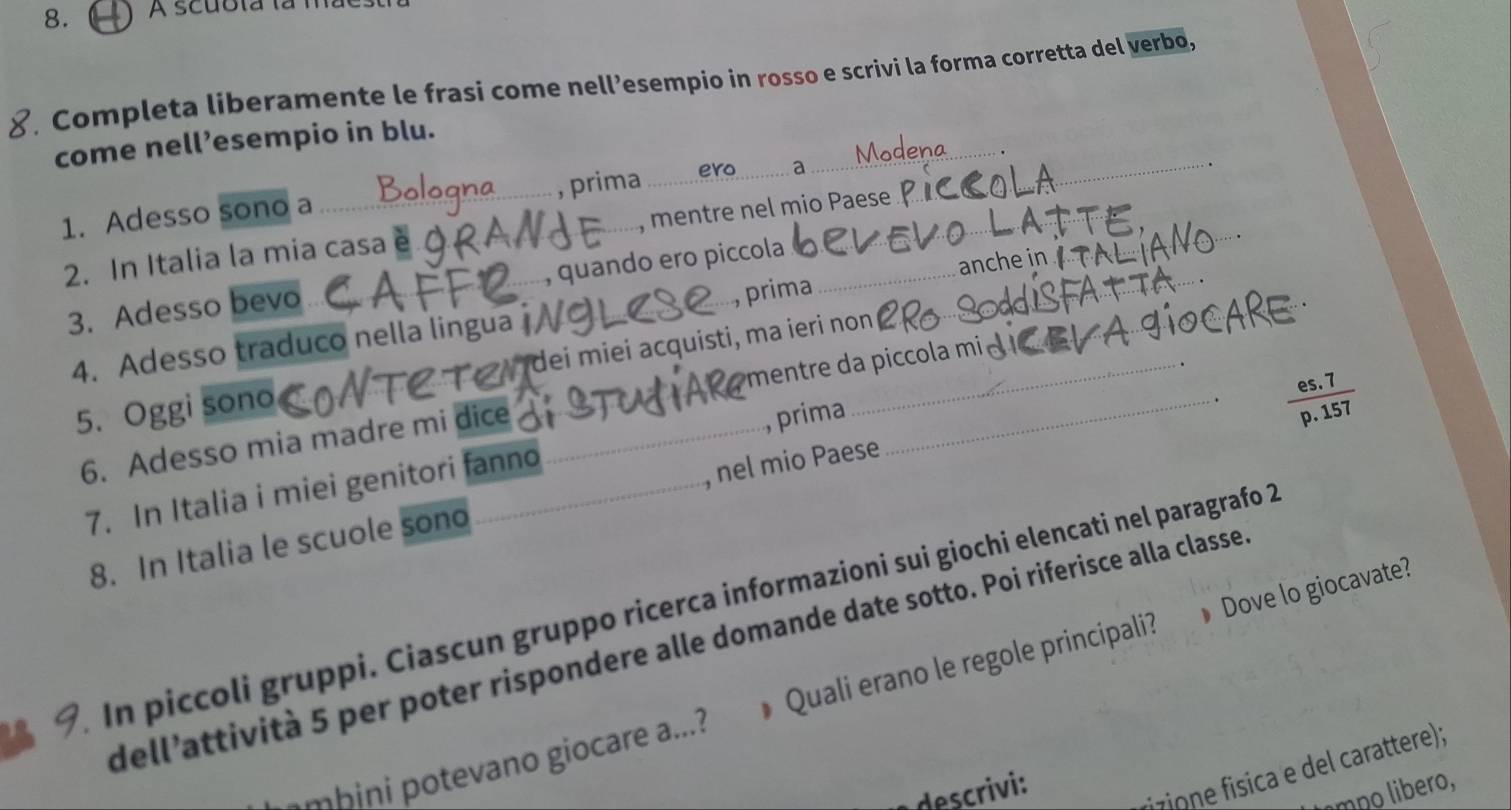 8. H A scuola la maestra
8. Completa liberamente le frasi come nell'esempio in rosso e scrivi la forma corretta del verbo,
come nell'esempio in blu.
1. Adesso sono a Bologna, prima ero a Modena.
2. In Italia la mia casa è gRANdE, mentre nel mio Paese PiCCOLA.
3. Adesso bevo CAFFe, quando ero piccola beVEVO LATTE,
4. Adesso traduco nella lingua iNgLeSe, prima anche in ITALIANO.
5. Oggi sono CONTeTeNTA dei miei acquisti, ma ieri non eRo SoddiSFATTA.
6. Adesso mia madre mi dice di STUdiARe mentre da piccola mi diCEVA giOCARE.
7. In Italia i miei genitori fanno, prima.
8. In Italia le scuole sono, nel mio Paese.
es. 7
p. 157
9. In piccoli gruppi. Ciascun gruppo ricerca informazioni sui giochi elencati nel paragrafo 2
dell'attività 5 per poter rispondere alle domande date sotto. Poi riferisce alla classe.
potevano giocare a...? Quali erano le regole principali? Dove lo giocavate?
descrivi:
fisica e del carattere);
libero,